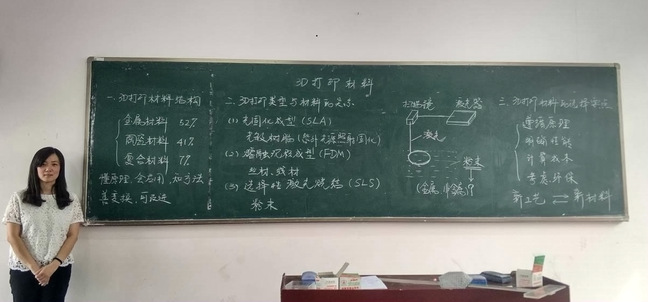 3D打印材料
一、3D打印材料结构
金属材料 52%
高分材料 41%
复合材料 7%
懂原理,会应用,知方法
善变换,可改进
二、3D打印类型与材料的关系
(1) 光固化成型(SLA)
光敏树脂(紫外光源照射固化)
(2) 熔融沉积成型(FDM)
丝材、线材
(3) 选择性激光烧结(SLS)
粉末
扫描镜
激光器
激光
粉末
三、3D打印材料的选择要点
遵循原理
明确性能
计算成本
考虑环保
新工艺 ⇌ 新材料